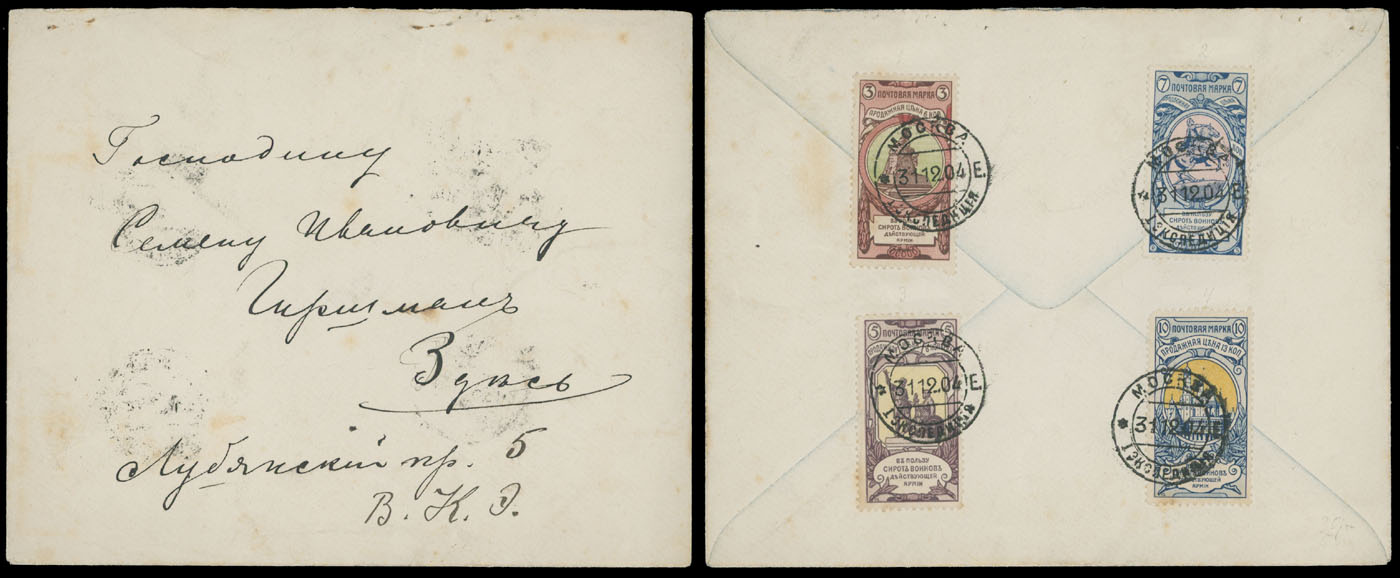 Господину
Семену Ивановичу
Гиршманъ
Здѣсь
Лубянскій пр. 5
В. К. Э.
3 3
ПОЧТОВАЯ МАРКА
ПРОДАЖНАЯ ЦѢНА 6 КОП.
МОСКВА
31 12.04 Е.
ЭКСПЕДИЦІЯ
СИРОТЪ ВОИНОВЪ
ДѢЙСТВУЮЩЕЙ
АРМІИ
7 7
ПОЧТОВАЯ МАРКА
МОСКВА
31 12.04 Е.
ЭКСПЕДИЦІЯ
ВЪ ПОЛЬЗУ
СИРОТЪ ВОИНОВЪ
ДѢЙСТВУЮЩЕЙ
АРМІИ
5 5
ПОЧТОВАЯ МАРКА
МОСКВА
31 12.04 Е.
1 ЭКСПЕДИЦІЯ
ВЪ ПОЛЬЗУ
СИРОТЪ ВОИНОВЪ
ДѢЙСТВУЮЩЕЙ
АРМІИ
10 10
ПОЧТОВАЯ МАРКА
ПРОДАЖНАЯ ЦѢНА 13 КОП.
МОСКВА
31 12.04 Е.
ЭКСПЕДИЦІЯ
АРМІИ